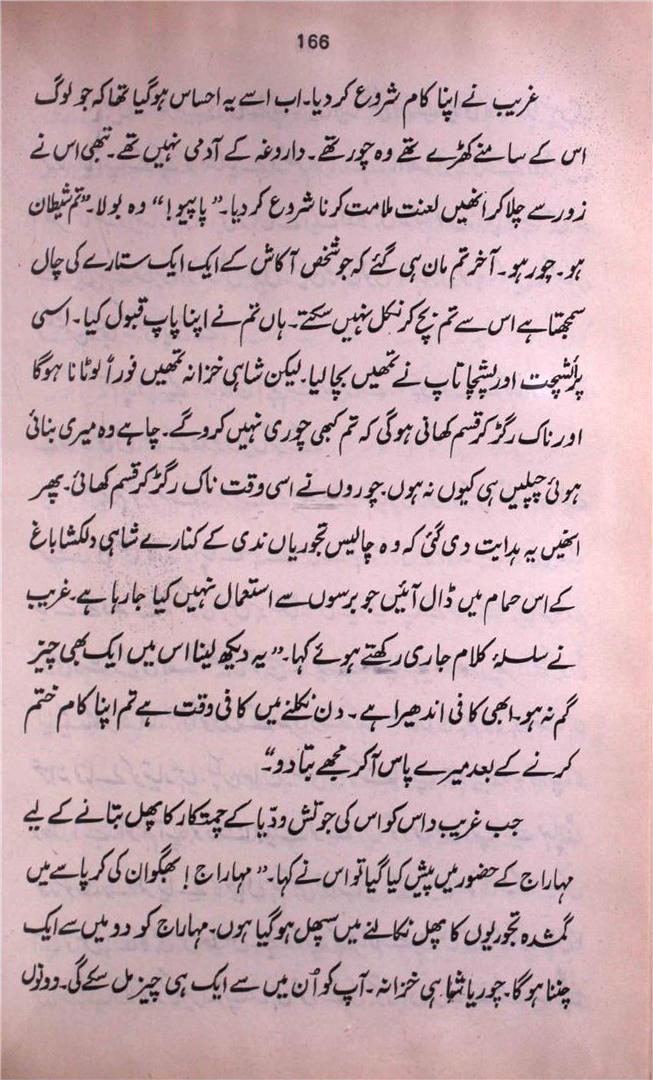 166
غریب نے اپنا کام شروع کر دیا۔ اب اسے یہ احساس ہوگیا تھا کہ جو لوگ
اس کے سامنے کھڑے تھے وہ چور تھے۔ داروغہ کے آدمی نہیں تھے۔ تبھی اس نے
زور سے چلا کر انھیں لعنت ملامت کرنا شروع کر دیا۔ ”پاپیو!“ وہ بولا۔ ”تم شیطان
ہو۔ چور ہو۔ آخر تم مان ہی گئے کہ جو شخص آکاش کے ایک ایک ستارے کی چال
سمجھتا ہے اس سے تم بچ کر نکل نہیں سکتے۔ ہاں تم نے اپنا پاپ قبول کیا۔ اسی
پرائشچت اور پشچاتاپ نے تمھیں بچا لیا۔ لیکن شاہی خزانہ تمھیں فوراً لوٹانا ہوگا
اور ناک رگڑ کر قسم کھانی ہوگی کہ تم کبھی چوری نہیں کروگے۔ چاہے وہ میری بنائی
ہوئی چپلیں ہی کیوں نہ ہوں۔ چوروں نے اسی وقت ناک رگڑ کر قسم کھائی۔ پھر
انھیں یہ ہدایت دی گئی کہ وہ چالیس تجوریاں ندی کے کنارے شاہی دلکشا باغ
کے اس حمام میں ڈال آئیں جو برسوں سے استعمال نہیں کیا جا رہا ہے۔ غریب
نے سلسلۂ کلام جاری رکھتے ہوئے کہا۔ ”یہ دیکھ لینا اس میں ایک بھی چیز
گم نہ ہو۔ ابھی کافی اندھیرا ہے۔ دن نکلنے میں کافی وقت ہے تم اپنا کام ختم
کرنے کے بعد میرے پاس آکر مجھے بتا دو“
جب غریب داس کو اس کی جوتش ودّیا کے چمتکار کا پھل بتانے کے لیے
مہاراج کے حضور میں پیش کیا گیا تو اس نے کہا۔ ”مہاراج! بھگوان کی کرپا سے میں
گمشدہ تجوریوں کا پھل نکالنے میں سپھل ہوگیا ہوں۔ مہاراج کو دو میں سے ایک
چننا ہوگا۔ چور یا شاہی خزانہ۔ آپ کو اُن میں سے ایک ہی چیز مل سکے گی۔ دونوں